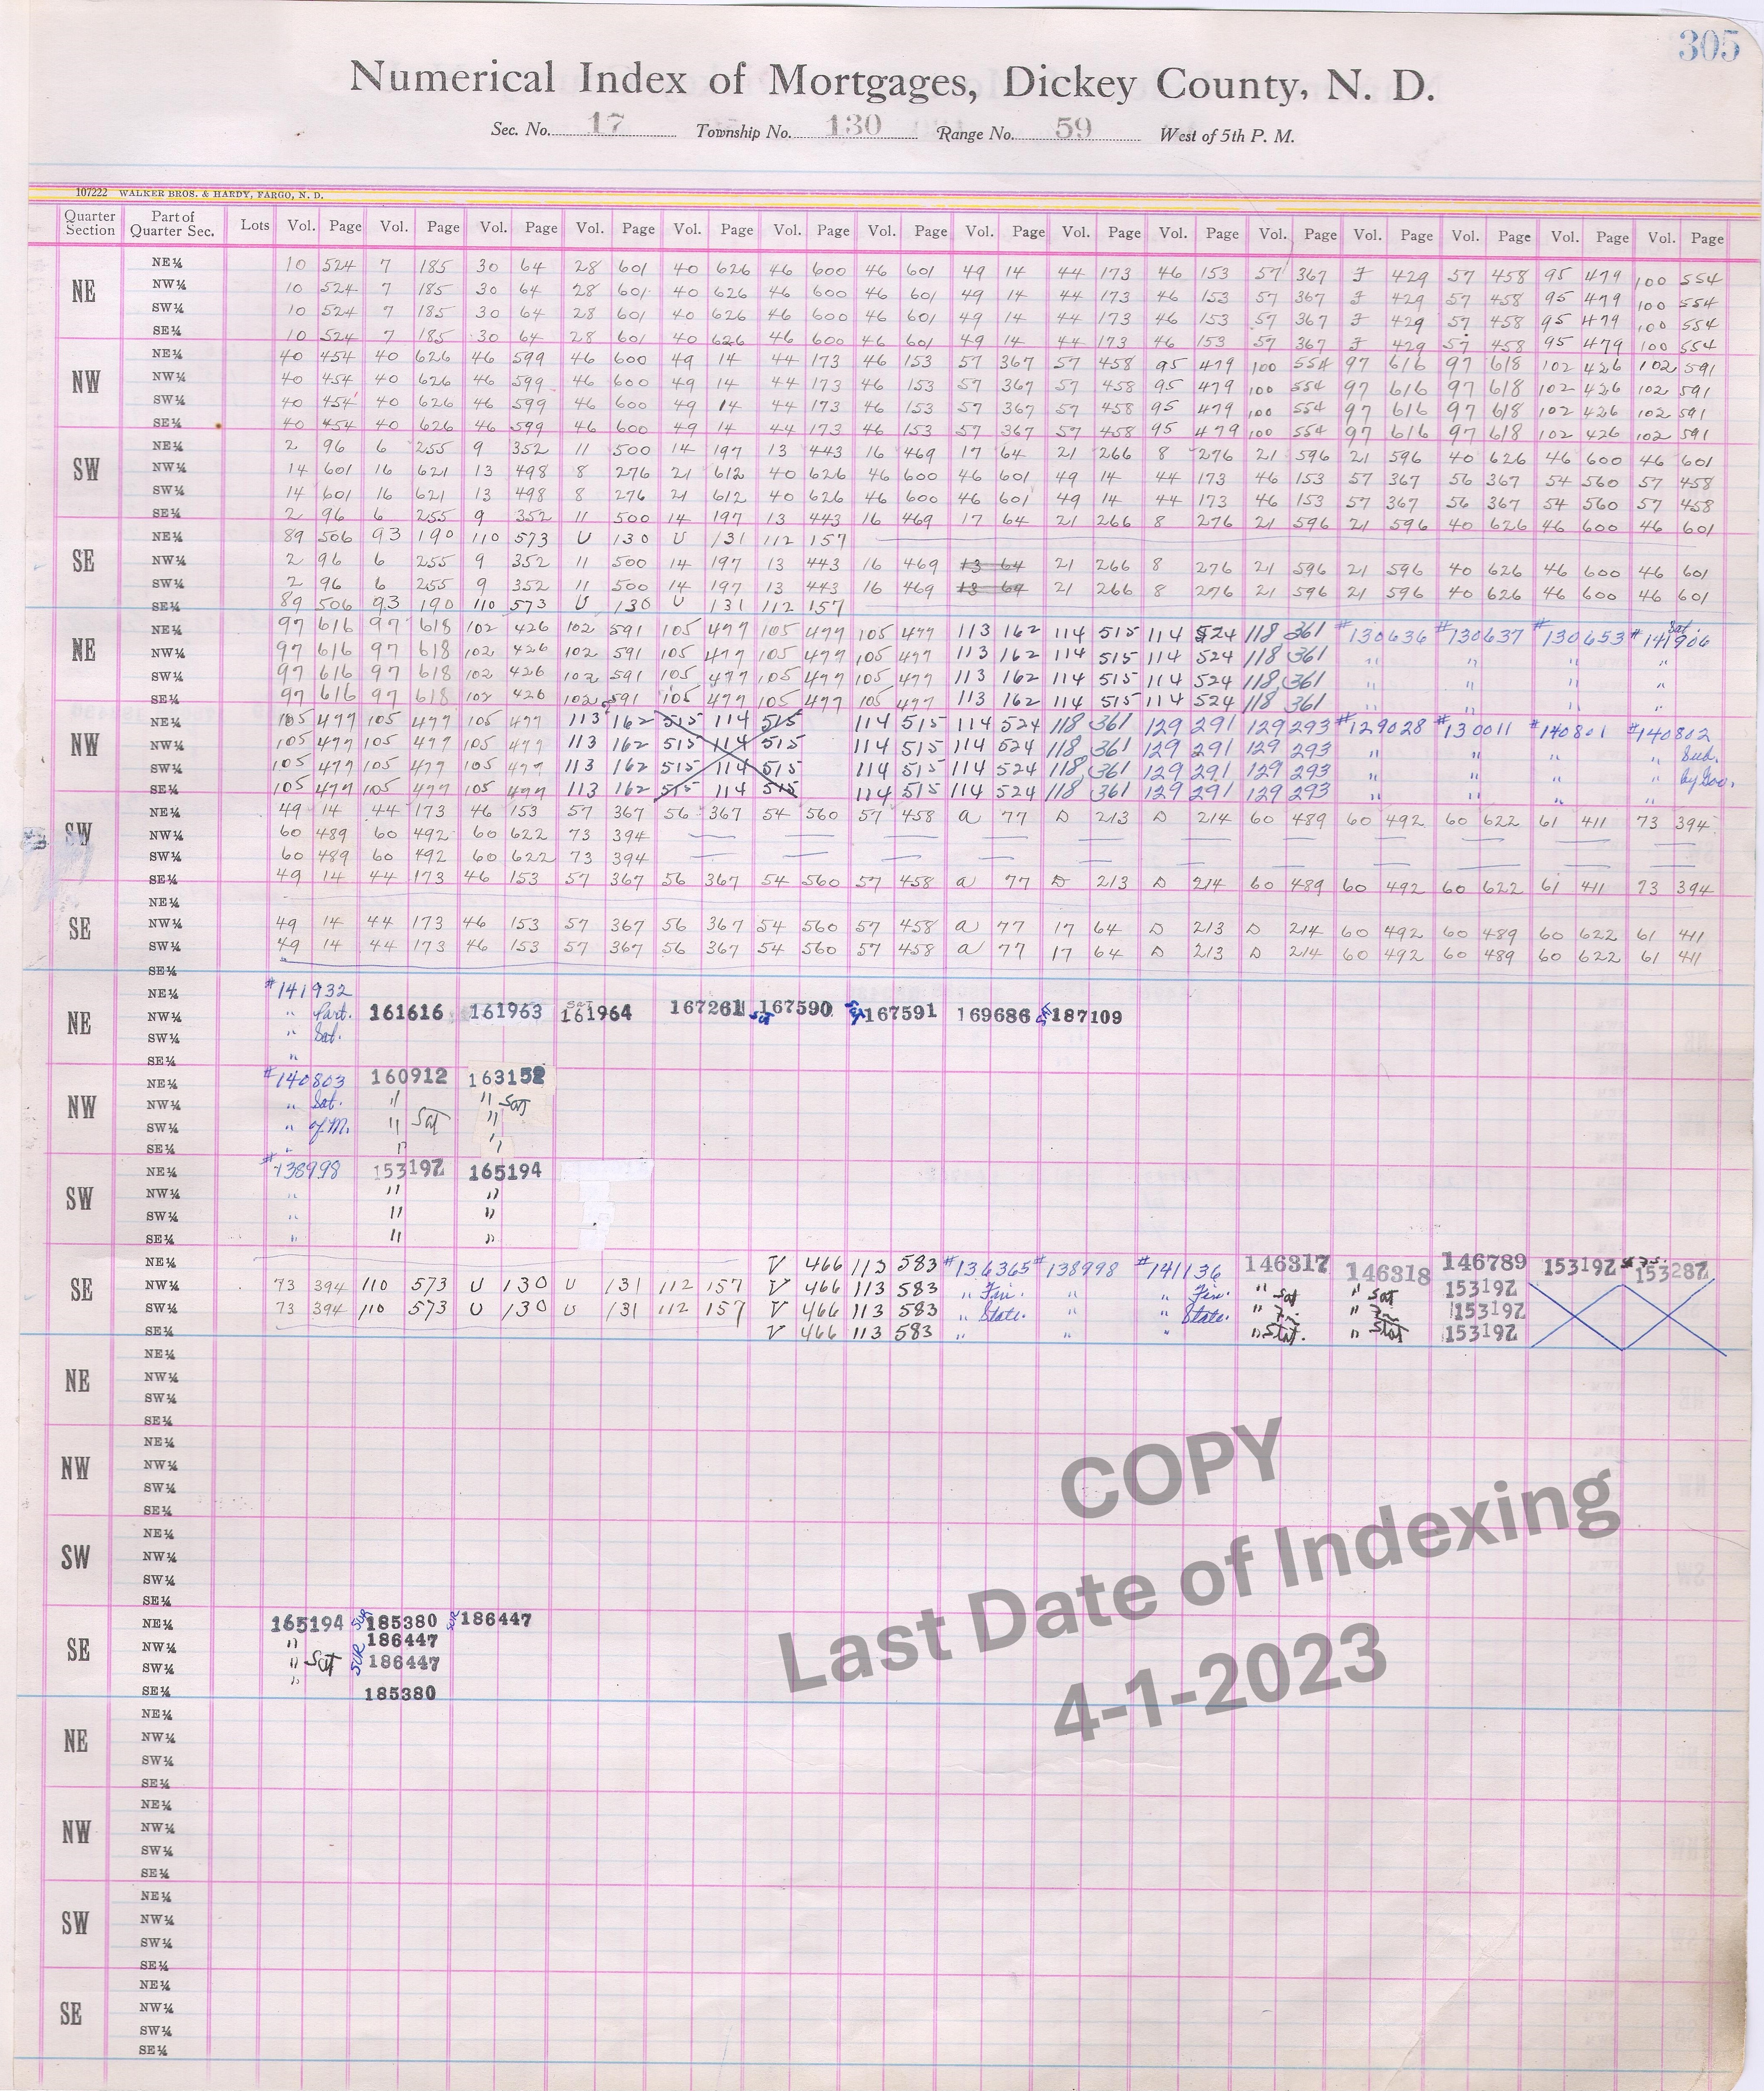 305
Numerical Index of Mortgages, Dickey County, N. D.
Sec. No. 17 Township No. 130 Range No. 59 West of 5th P. M.
107222 WALKER BROS. & HARDY, FARGO, N. D.
Quarter Section Part of Quarter Sec. Lots Vol. Page Vol. Page Vol. Page Vol. Page Vol. Page Vol. Page Vol. Page Vol. Page Vol. Page Vol. Page Vol. Page Vol. Page Vol. Page Vol. Page Vol. Page
NE
NE¼ 10 524 7 185 30 64 28 601 40 626 46 600 46 601 49 14 44 173 46 153 57 367 F 429 57 458 95 479 100 554
NW¼ 10 524 7 185 30 64 28 601 40 626 46 600 46 601 49 14 44 173 46 153 57 367 F 429 57 458 95 479 100 554
SW¼ 10 524 7 185 30 64 28 601 40 626 46 600 46 601 49 14 44 173 46 153 57 367 F 429 57 458 95 479 100 554
SE¼ 10 524 7 185 30 64 28 601 40 626 46 600 46 601 49 14 44 173 46 153 57 367 F 429 57 458 95 479 100 554
NW
NE¼ 40 454 40 626 46 599 46 600 49 14 44 173 46 153 57 367 57 458 95 479 100 554 97 616 97 618 102 426 102 591
NW¼ 40 454 40 626 46 599 46 600 49 14 44 173 46 153 57 367 57 458 95 479 100 554 97 616 97 618 102 426 102 591
SW¼ 40 454 40 626 46 599 46 600 49 14 44 173 46 153 57 367 57 458 95 479 100 554 97 616 97 618 102 426 102 591
SE¼ 40 454 40 626 46 599 46 600 49 14 44 173 46 153 57 367 57 458 95 479 100 554 97 616 97 618 102 426 102 591
SW
NE¼ 2 96 6 255 9 352 11 500 14 197 13 443 16 469 17 64 21 266 8 276 21 596 21 596 40 626 46 600 46 601
NW¼ 14 601 16 621 13 498 8 276 21 612 40 626 46 600 46 601 49 14 44 173 46 153 57 367 56 367 54 560 57 458
SW¼ 14 601 16 621 13 498 8 276 21 612 40 626 46 600 46 601 49 14 44 173 46 153 57 367 56 367 54 560 57 458
SE¼ 2 96 6 255 9 352 11 500 14 197 13 443 16 469 17 64 21 266 8 276 21 596 21 596 40 626 46 600 46 601
SE
NE¼ 89 506 93 190 110 573 U 130 U 131 112 157
NW¼ 2 96 6 255 9 352 11 500 14 197 13 443 16 469 13 64 21 266 8 276 21 596 21 596 40 626 46 600 46 601
SW¼ 2 96 6 255 9 352 11 500 14 197 13 443 16 469 13 64 21 266 8 276 21 596 21 596 40 626 46 600 46 601
SE¼ 89 506 93 190 110 573 U 130 U 131 112 157
NE
NE¼ 97 616 97 618 102 426 102 591 105 477 105 477 105 477 113 162 114 515 114 524 118 361 #130636 #130637 #130653 #141906 Sat.
NW¼ 97 616 97 618 102 426 102 591 105 477 105 477 105 477 113 162 114 515 114 524 118 361 " " " "
SW¼ 97 616 97 618 102 426 102 591 105 477 105 477 105 477 113 162 114 515 114 524 118 361 " " " "
SE¼ 97 616 97 618 102 426 102 591 105 477 105 477 105 477 113 162 114 515 114 524 118 361 " " " "
NW
NE¼ 105 477 105 477 105 477 113 162 515 114 515 114 515 114 524 118 361 129 291 129 293 #129028 #130011 #140801 #140802
NW¼ 105 477 105 477 105 477 113 162 515 114 515 114 515 114 524 118 361 129 291 129 293 " " " " Sub.
SW¼ 105 477 105 477 105 477 113 162 515 114 515 114 515 114 524 118 361 129 291 129 293 " " " " by Gov.
SE¼ 105 477 105 477 105 477 113 162 515 114 515 114 515 114 524 118 361 129 291 129 293 " " " "
SW
NE¼ 49 14 44 173 46 153 57 367 56 367 54 560 57 458 a 77 D 213 D 214 60 489 60 492 60 622 61 411 73 394
NW¼ 60 489 60 492 60 622 73 394
SW¼ 60 489 60 492 60 622 73 394
SE¼ 49 14 44 173 46 153 57 367 56 367 54 560 57 458 a 77 D 213 D 214 60 489 60 492 60 622 61 411 73 394
SE
NE¼
NW¼ 49 14 44 173 46 153 57 367 56 367 54 560 57 458 a 77 17 64 D 213 D 214 60 492 60 489 60 622 61 411
SW¼ 49 14 44 173 46 153 57 367 56 367 54 560 57 458 a 77 17 64 D 213 D 214 60 492 60 489 60 622 61 411
SE¼
NE
NE¼ #141932
NW¼ " Part. 161616 161963 SAT 161964 167261 SAT 167590 SAT 167591 169686 SAT 187109
SW¼ " Sat.
SE¼ "
NW
NE¼ #140803 160912 163152
NW¼ " Sat. " " Sat
SW¼ " of M. " Sat "
SE¼ " " "
SW
NE¼ #138998 153192 165194
NW¼ " " "
SW¼ " " "
SE¼ " " "
SE
NE¼ V 466 113 583 #136365 #138998 #141136 146317 146318 146789 153192 153282
NW¼ 73 394 110 573 U 130 U 131 112 157 V 466 113 583 " Fin. " " Fin. " Sat " Sat 153192
SW¼ 73 394 110 573 U 130 U 131 112 157 V 466 113 583 " State. " " State. " Fn. " Fn. 153192
SE¼ V 466 113 583 " " " " Stat. " Stat 153192
NE
NE¼
NW¼
SW¼
SE¼
NW
NE¼
NW¼
SW¼
SE¼
SW
NE¼
NW¼
SW¼
SE¼
SE
NE¼ 165194 SUR 185380 SUR 186447
NW¼ " 186447
SW¼ " Sat SUR 186447
SE¼ " 185380
NE
NE¼
NW¼
SW¼
SE¼
NW
NE¼
NW¼
SW¼
SE¼
SW
NE¼
NW¼
SW¼
SE¼
SE
NE¼
NW¼
SW¼
SE¼
COPY
Last Date of Indexing
4-1-2023